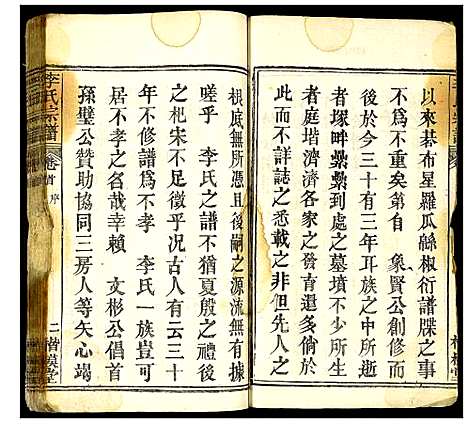 以來棊布星羅瓜緜椒衍譜牒之事
不爲不重矣第自　象賢公創修而
後於今三十有三年耳族之中不
者塚畔纍纍到處之墓墳不少所生
者庭堦濟濟各家之發育還多倘於
此而不詳誌之悉載之非但先人之
根底無所憑且後嗣之源流無有據
嗟乎　李氏之譜不猶夏殷之禮後
之杞宋不足徵乎况古人有云三十
年不修譜爲不孝　李氏一族豈可
居不孝之名哉幸賴　文彬公倡首
孫璧公贊助協同三房人等矢心竭
李氏宗譜
卷首　序
二